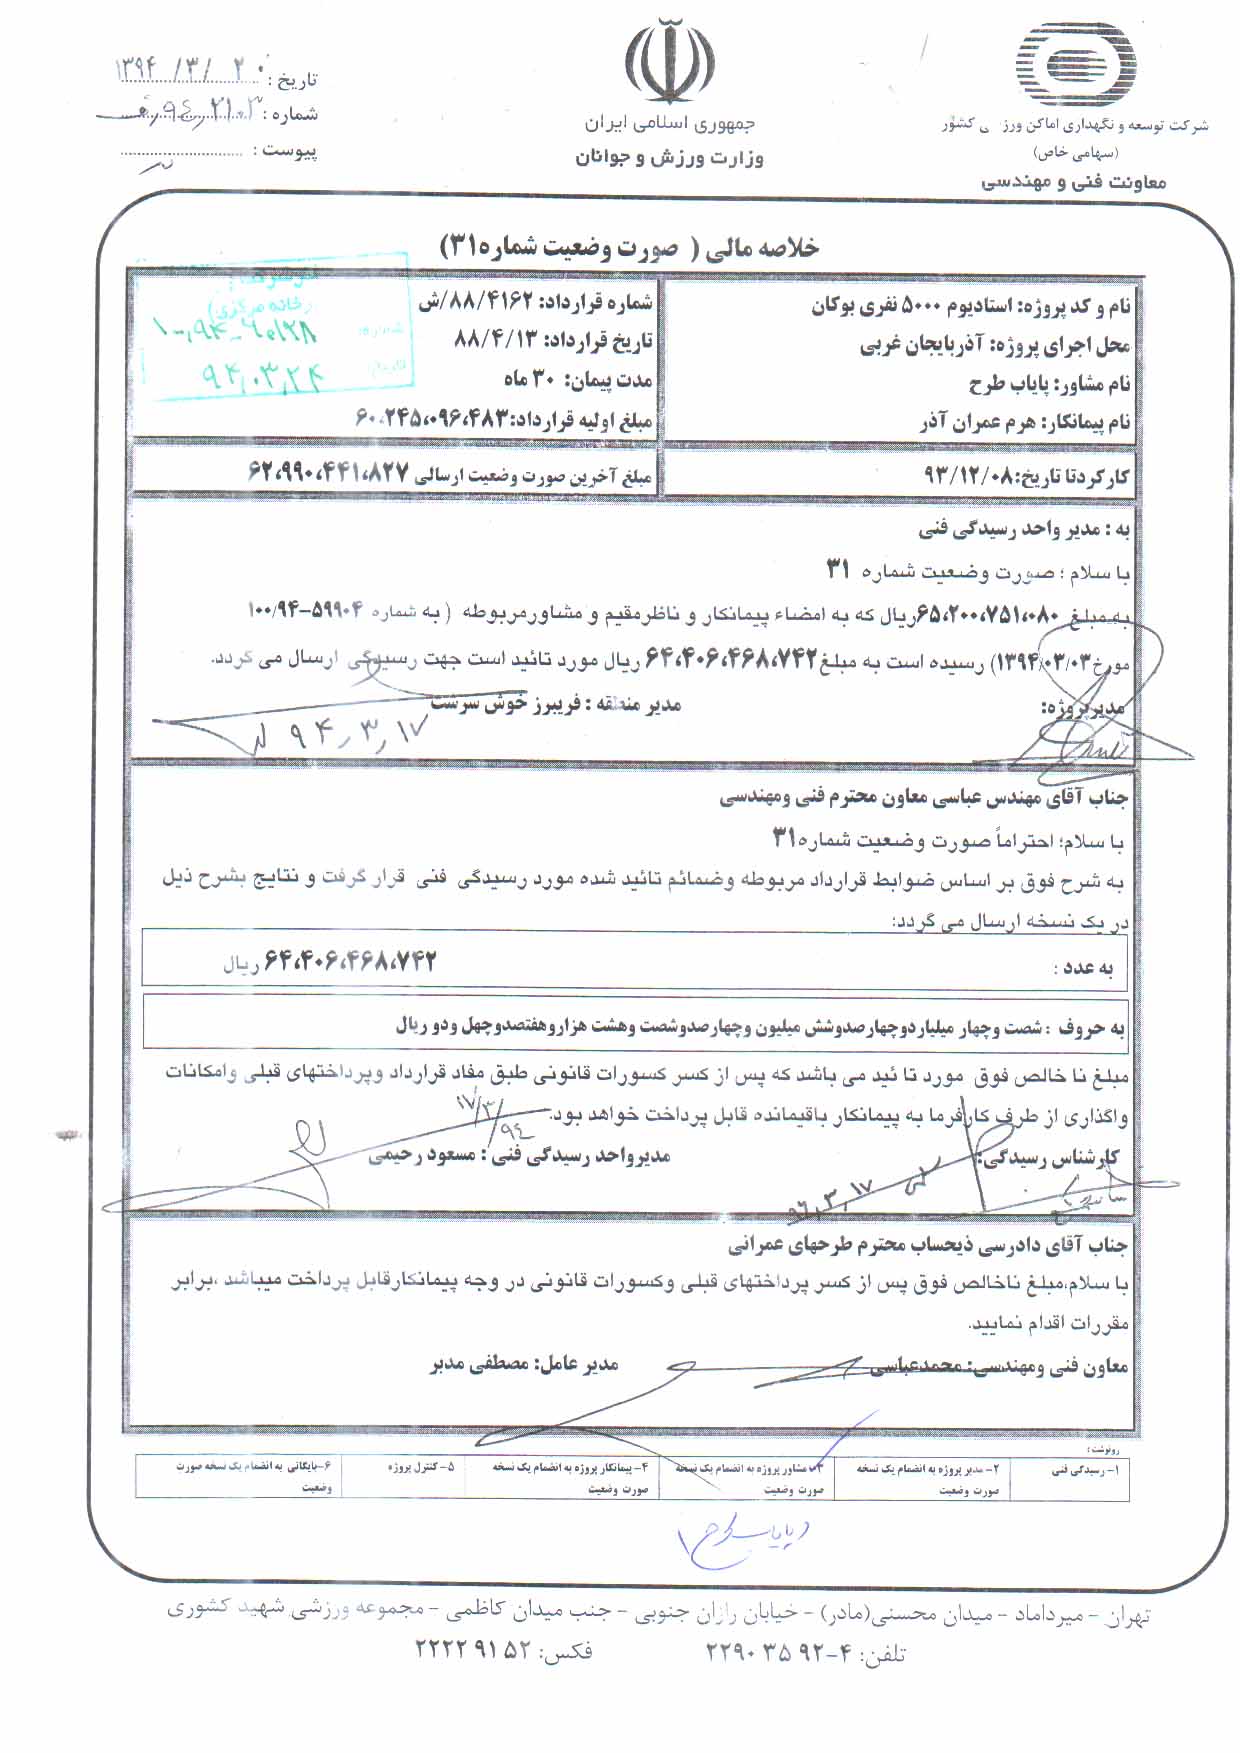 شرکت توسعه و نگهداری اماکن ورزشی کشور
(سهامی خاص)
معاونت فنی و مهندسی
جمهوری اسلامی ایران
وزارت ورزش و جوانان
تاریخ: ۱۳۹۴/۳/۲۰
شماره:
پیوست:
خلاصه مالی ( صورت وضعیت شماره۳۱)
نام و کد پروژه: استادیوم ۵۰۰۰ نفری بوکان
محل اجرای پروژه: آذربایجان غربی
نام مشاور: پایاب طرح
نام پیمانکار: هرم عمران آذر
شماره قرارداد: ۸۸/۴۱۶۲/ش
تاریخ قرارداد: ۸۸/۴/۱۳
مدت پیمان: ۳۰ ماه
مبلغ اولیه قرارداد:۶۰،۲۴۵،۰۹۶،۴۸۳
۹۴،۰۳،۲۴
کارکردتا تاریخ:۹۳/۱۲/۰۸
مبلغ آخرین صورت وضعیت ارسالی ۶۲،۹۹۰،۴۴۱،۸۲۷
به : مدیر واحد رسیدگی فنی
با سلام ؛ صورت وضعیت شماره ۳۱
به مبلغ ۶۵،۲۰۰،۷۵۱،۰۸۰ریال که به امضاء پیمانکار و ناظرمقیم و مشاورمربوطه ( به شماره ۵۹۹۰۴-۱۰۰/۹۴
مورخ۱۳۹۴/۰۳/۰۳) رسیده است به مبلغ۶۴،۴۰۶،۴۶۸،۷۴۲ ریال مورد تائید است جهت رسیدگی ارسال می گردد.
مدیرپروژه:
مدیر منطقه : فریبرز خوش سرشت
۹۴،۳،۱۷
جناب آقای مهندس عباسی معاون محترم فنی ومهندسی
با سلام؛ احتراماً صورت وضعیت شماره۳۱
به شرح فوق بر اساس ضوابط قرارداد مربوطه وضمائم تائید شده مورد رسیدگی فنی قرار گرفت و نتایج بشرح ذیل
در یک نسخه ارسال می گردد:
به عدد : ۶۴،۴۰۶،۴۶۸،۷۴۲ ریال
به حروف : شصت وچهار میلیاردوچهارصدوشش میلیون وچهارصدوشصت وهشت هزاروهفتصدوچهل ودو ریال
مبلغ نا خالص فوق مورد تا ئید می باشد که پس از کسر کسورات قانونی طبق مفاد قرارداد وپرداختهای قبلی وامکانات
واگذاری از طرف کارفرما به پیمانکار باقیمانده قابل پرداخت خواهد بود.
۹۴/۳/۱۷
کارشناس رسیدگی:
مدیرواحد رسیدگی فنی : مسعود رحیمی
جناب آقای دادرسی ذیحساب محترم طرحهای عمرانی
با سلام،مبلغ ناخالص فوق پس از کسر پرداختهای قبلی وکسورات قانونی در وجه پیمانکارقابل پرداخت میباشد ،برابر
مقررات اقدام نمایید.
معاون فنی ومهندسی: محمدعباسی
مدیر عامل: مصطفی مدبر
رونوشت:
۱- رسیدگی فنی
۲- مدیر پروژه به انضمام یک نسخه صورت وضعیت
۳- مشاور پروژه به انضمام یک نسخه صورت وضعیت
۴- پیمانکار پروژه به انضمام یک نسخه صورت وضعیت
۵- کنترل پروژه
۶- بایگانی به انضمام یک نسخه صورت وضعیت
تهران - میرداماد - میدان محسنی(مادر) - خیابان رازان جنوبی - جنب میدان کاظمی - مجموعه ورزشی شهید کشوری
تلفن: ۴-۲۲۹۰۳۵۹۲ فکس: ۲۲۲۲۹۱۵۲